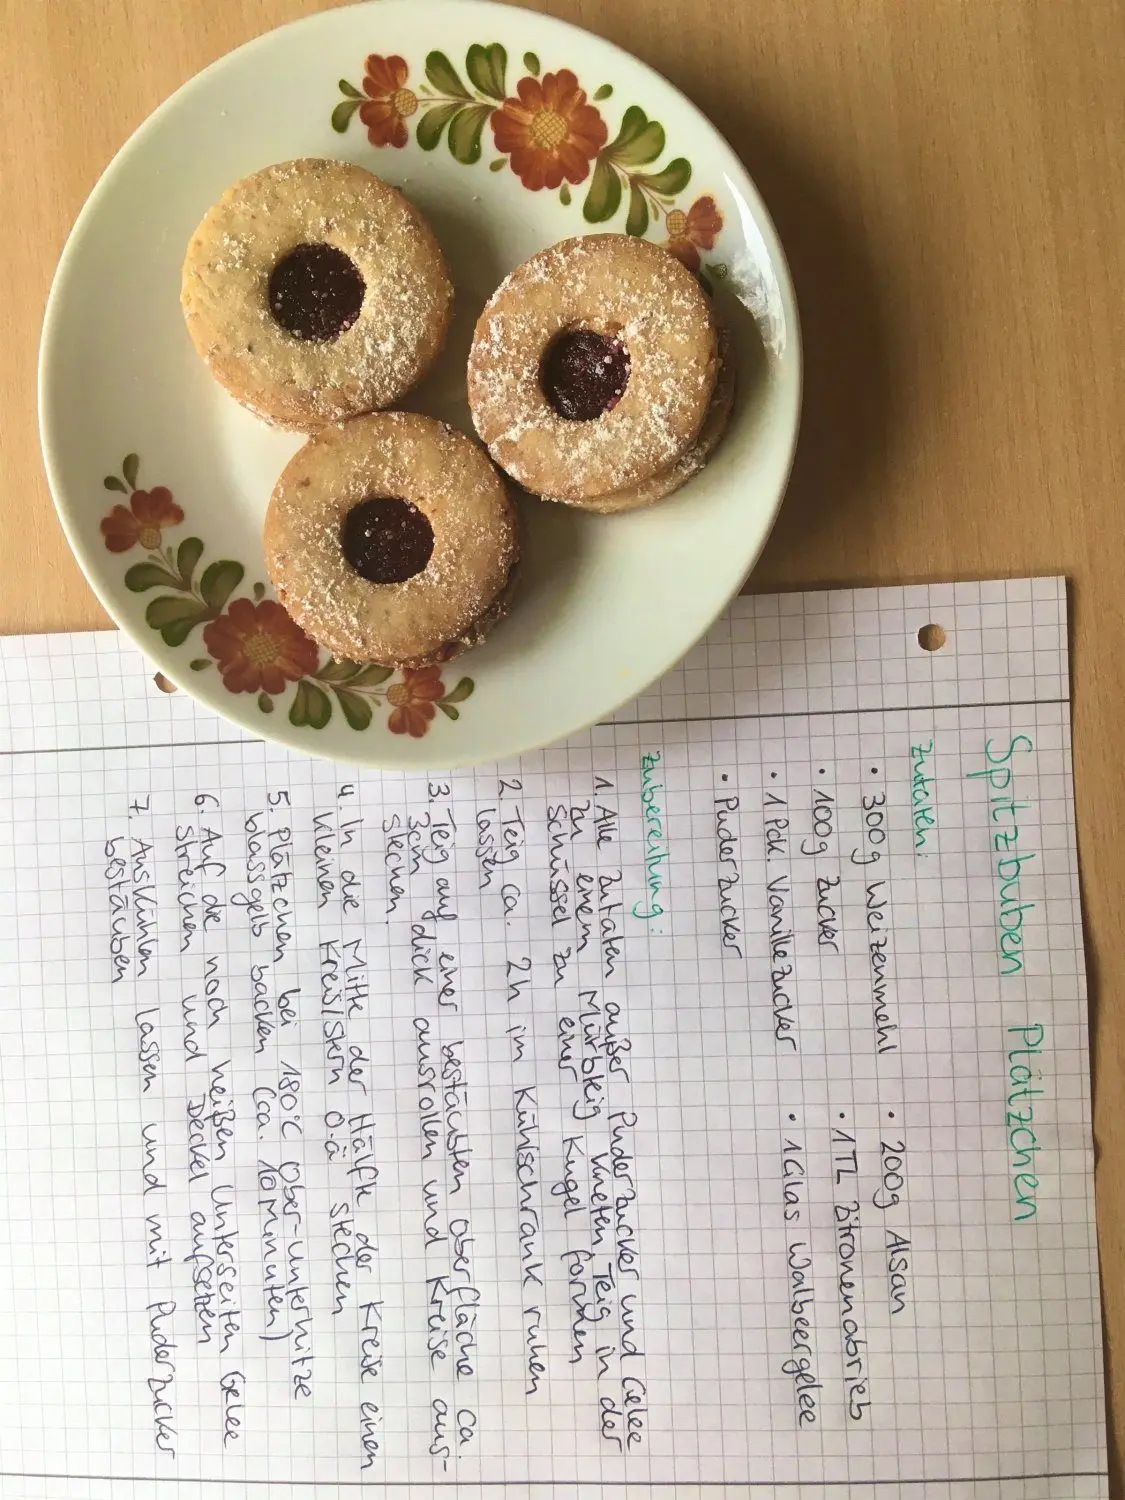 Spitzbuben Plätzchen
Zutaten:
· 300g Weizenmehl · 200g Alsan
· 100g Zucker · 1TL Zitronenabrieb
· 1 Pck. Vanillezucker · 1 Glas Waldbeergelee
· Puderzucker
Zubereitung:
1. Alle Zutaten außer Puderzucker und Gelee
zu einem Mürbteig kneten, Teig in der
Schüssel zu einer Kugel formen
2. Teig ca. 2h im Kühlschrank ruhen
lassen
3. Teig auf einer bestäubten Oberfläche ca.
3cm dick ausrollen und Kreise aus-
stechen.
4. In die Mitte der Hälfte der Kreise einen
kleinen Kreis/Stern o.ä stechen
5. Plätzchen bei 180°C Ober-unterhitze
blassgelb backen (ca. 10 Minuten)
6. Auf die noch heißen Unterseiten Gelee
streichen und Deckel aufsetzen
7. Auskühlen lassen und mit Puderzucker
bestäuben